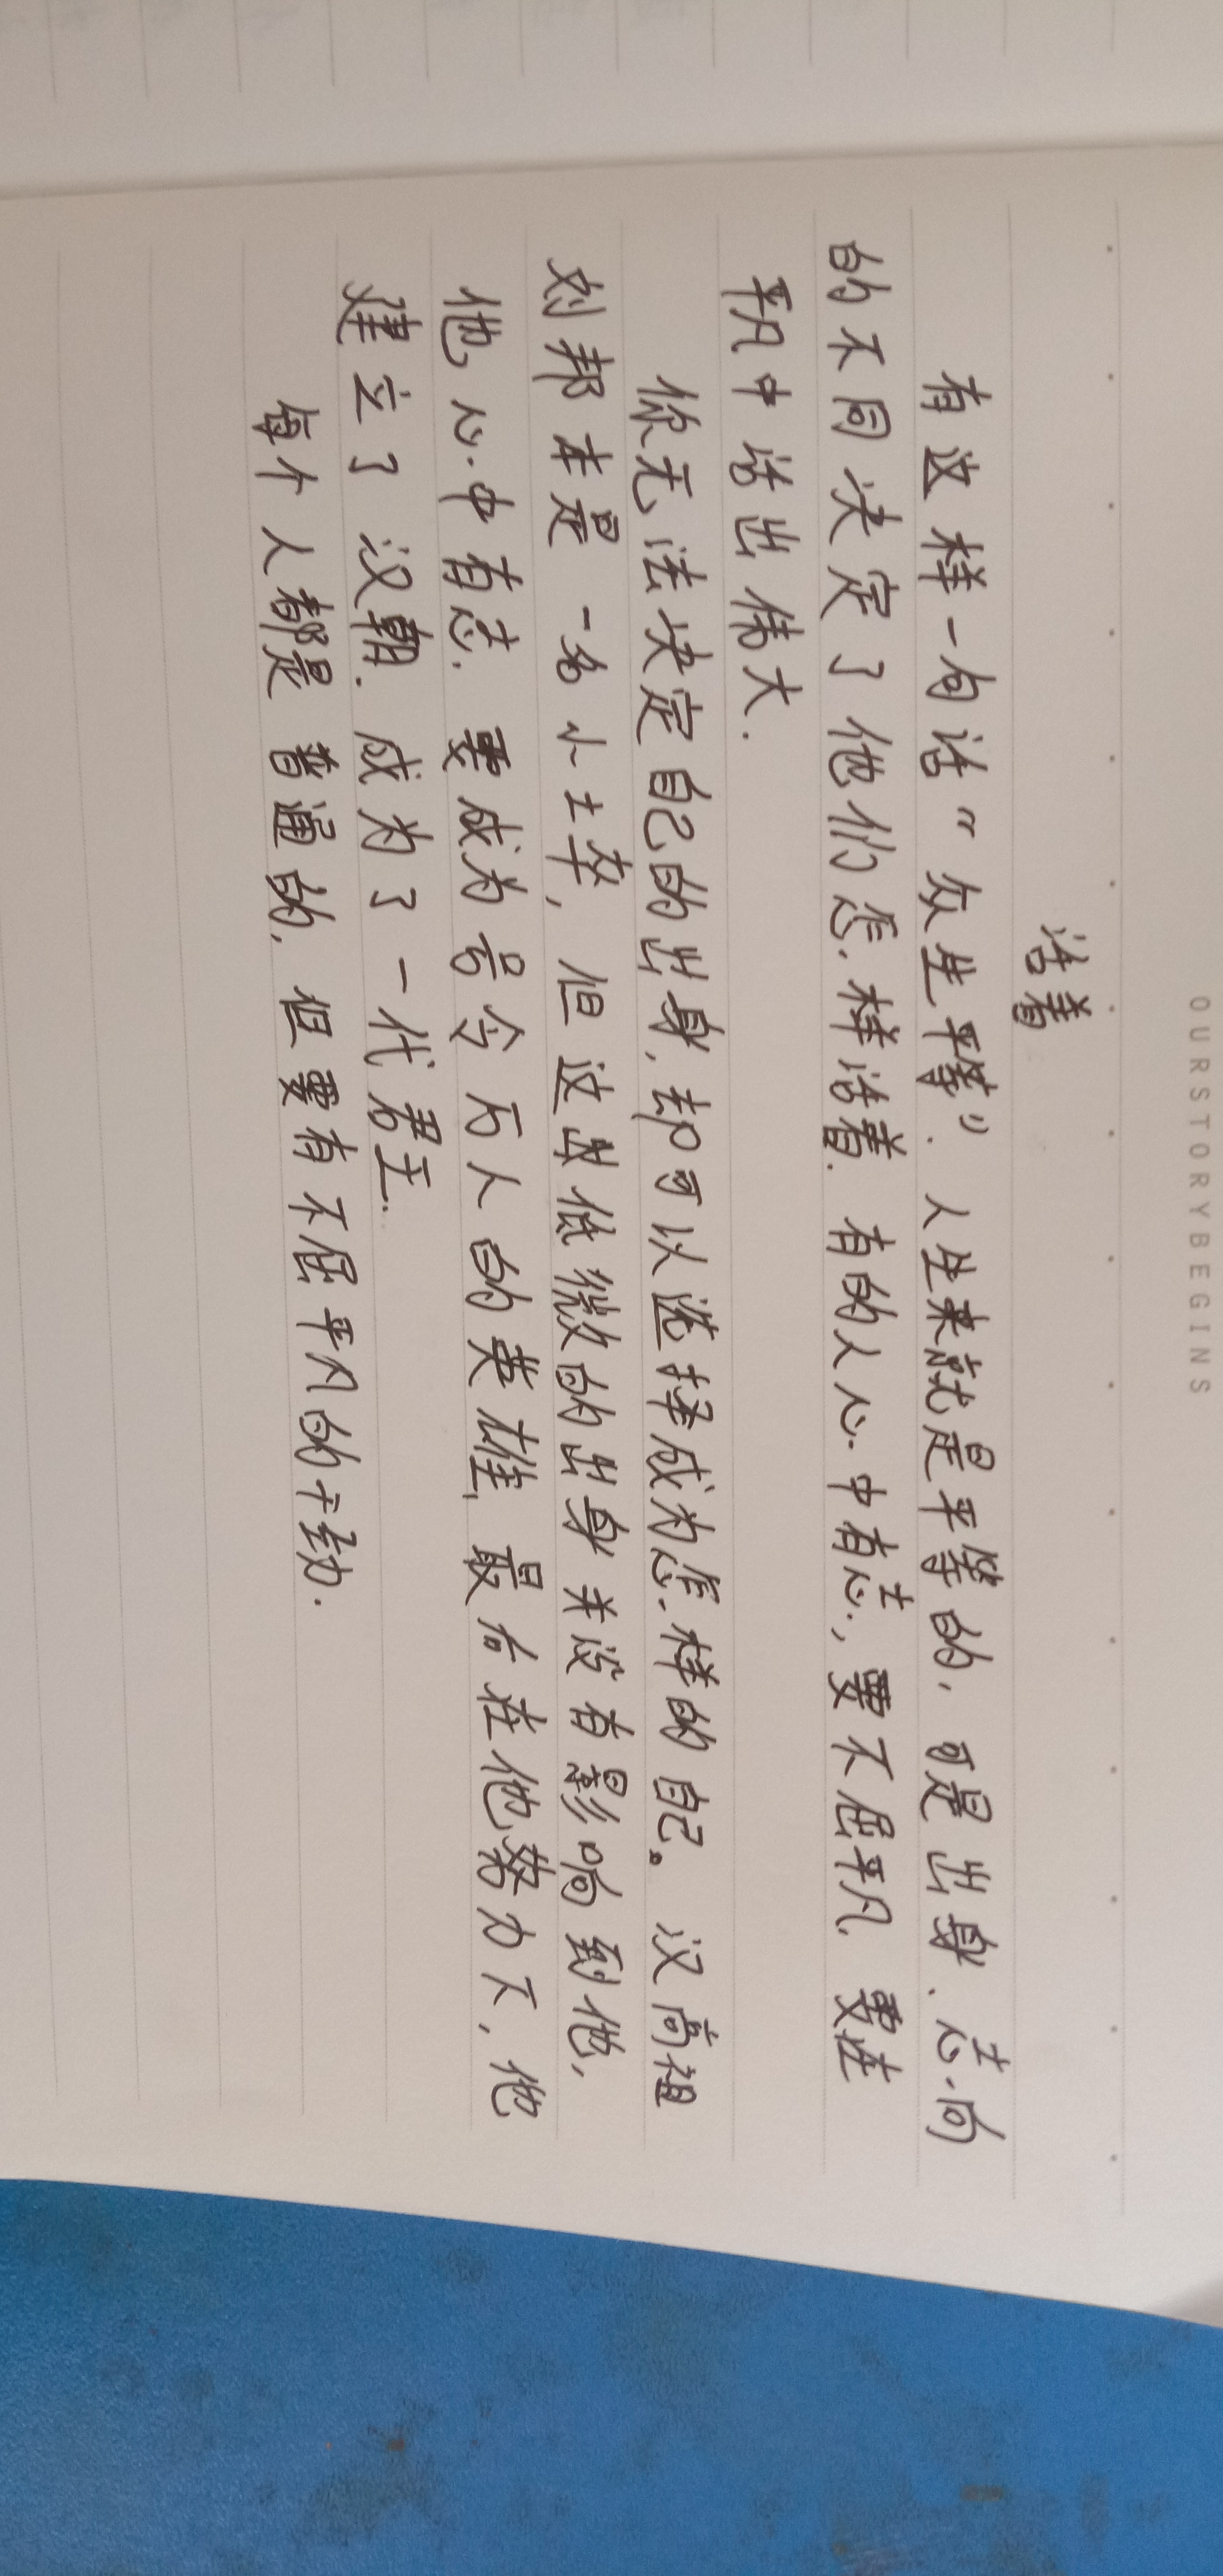 OURSTORYBEGINS
活着
有这样一句话“众生平等”.人生来就是平等的,可是出身、志向
的不同决定了他们怎样活着.有的人心中有志,要不屈平凡、要在
平凡中活出伟大.
你无法决定自己的出身,却可以选择成为怎样的自己。汉高祖
刘邦本是一名小士卒,但这败低微的出身并没有影响到他,
他心中有志.要成为号令万人的英雄,最后在他努力下,他
建立了汉朝.成为了一代君主.
每个人都是普通的,但要有不屈平凡的干劲.